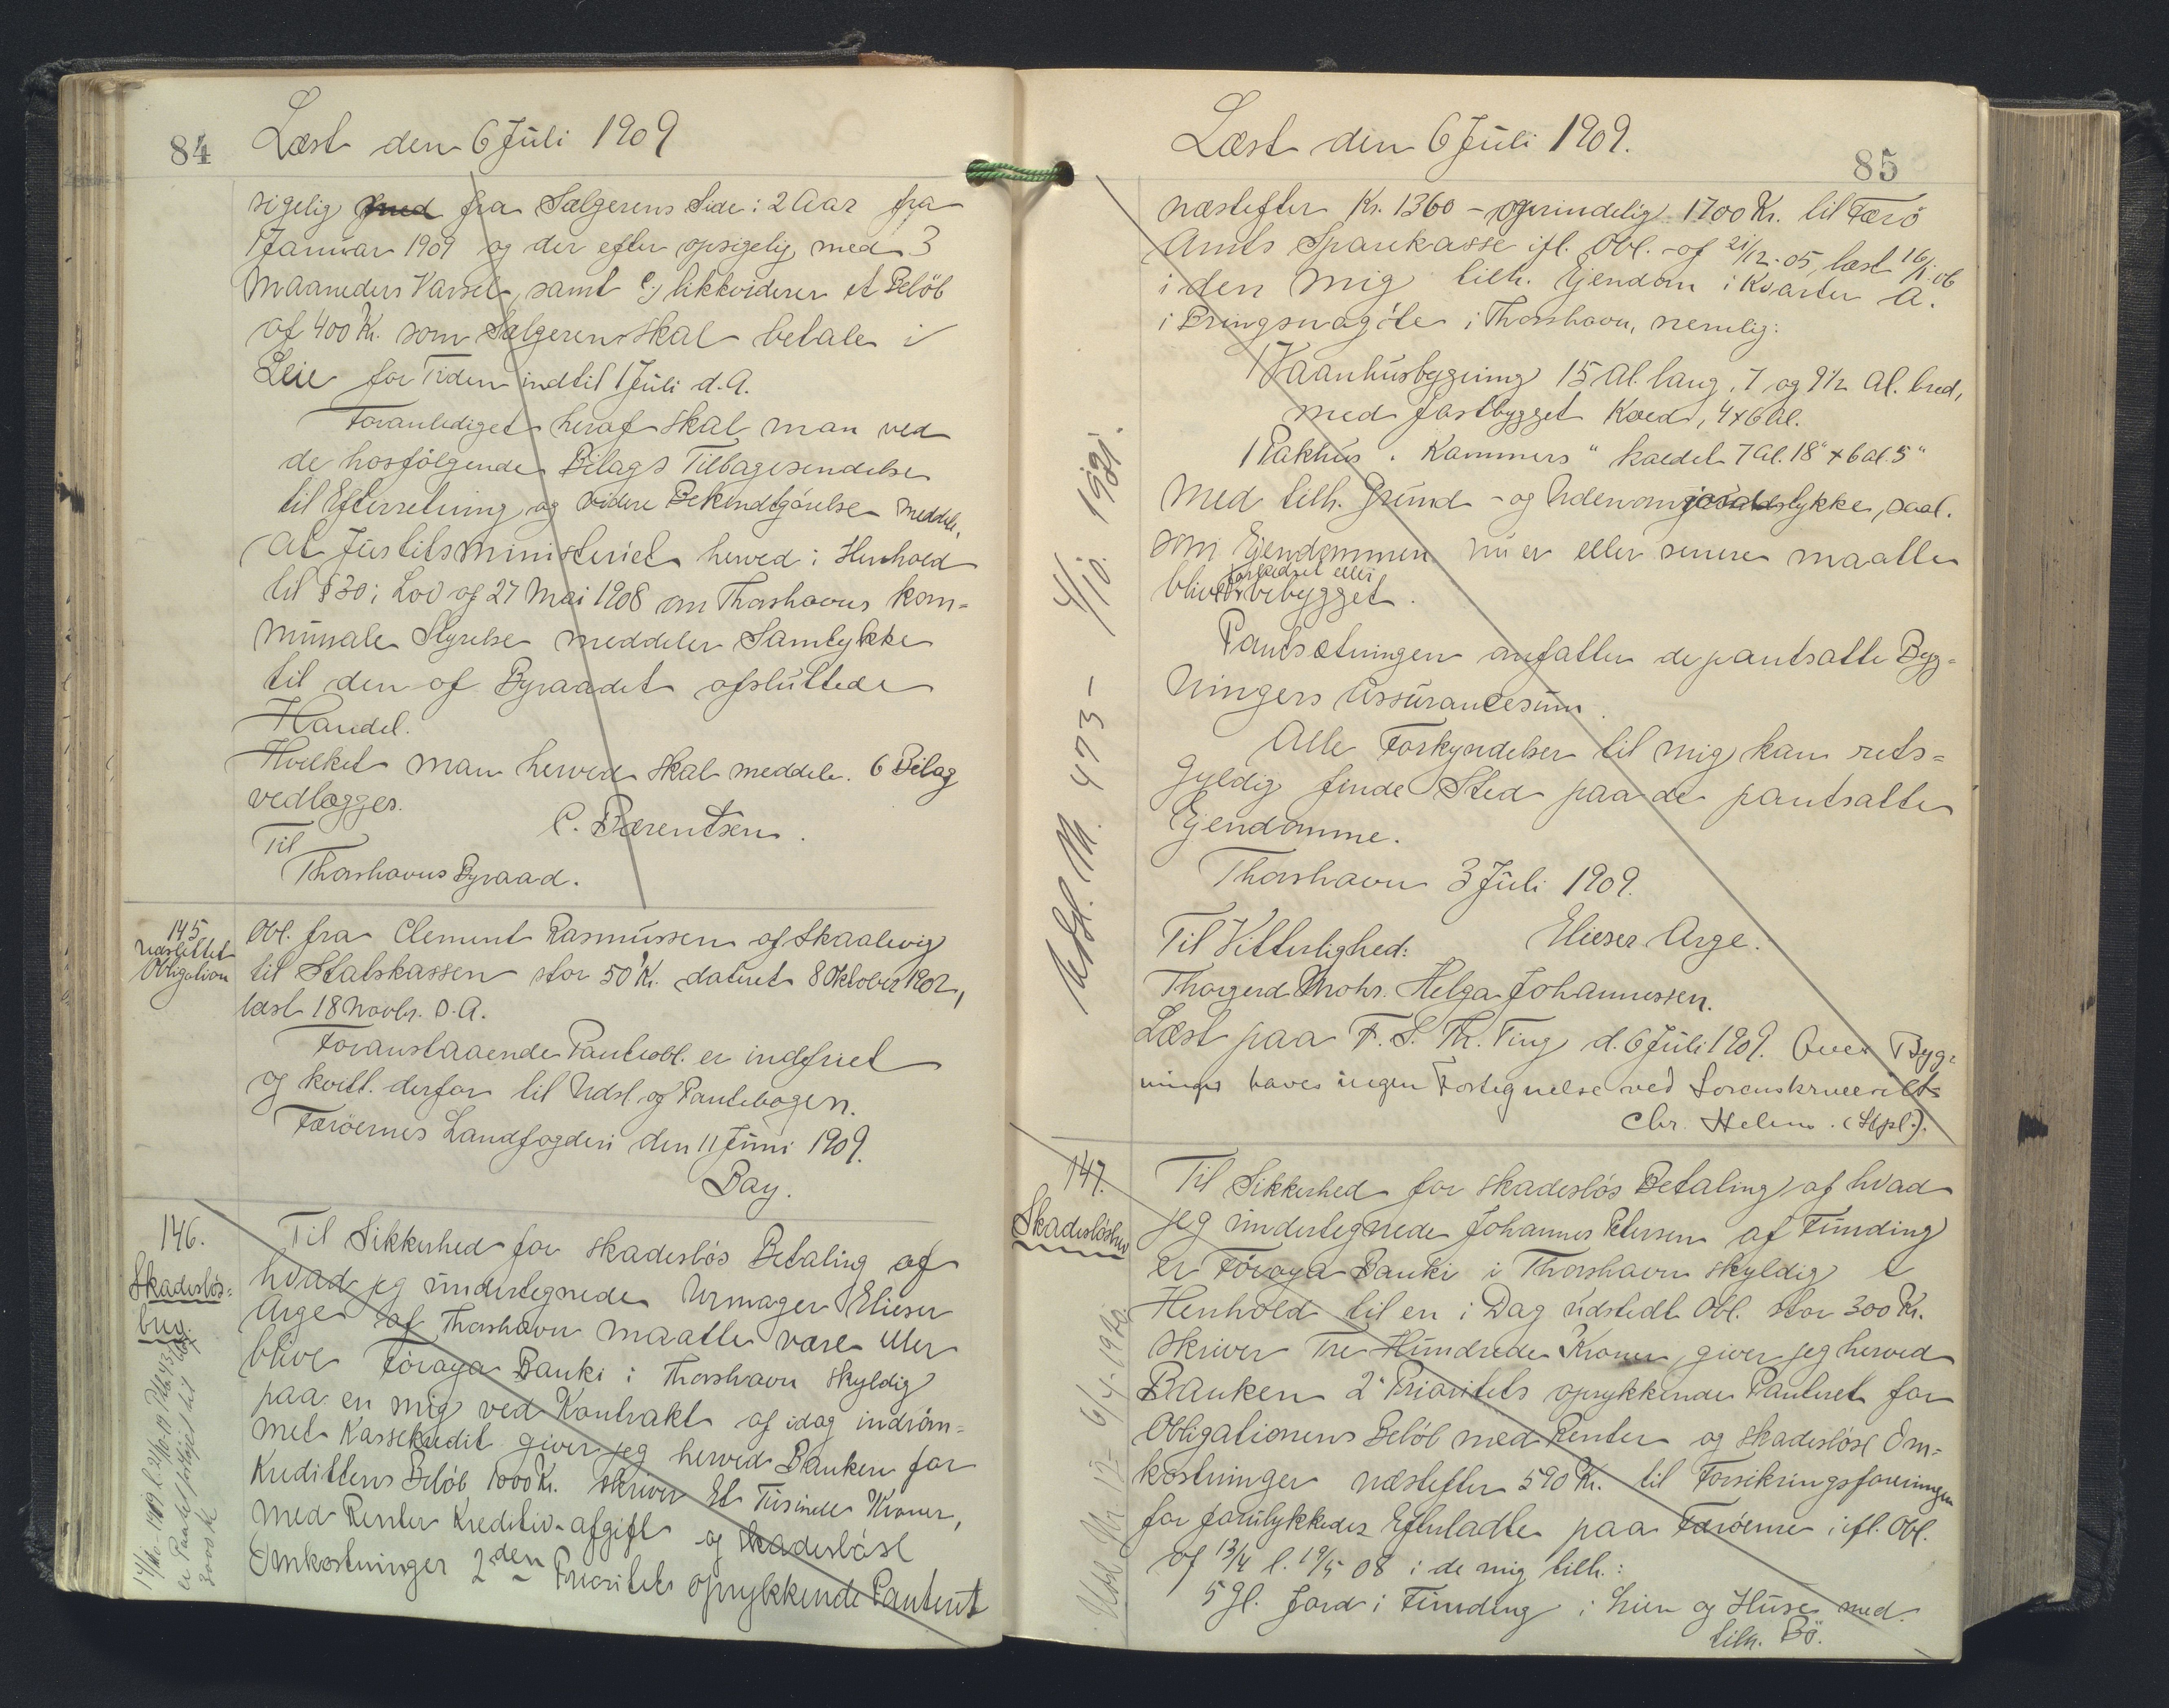 84
Læst den 6 Juli 1909
sigelig med fra Sælgerens Side i 2 Aar fra
1 Januar 1909 og der efter opsigelig med 3
Maaneders Varsel, samt c.) likkviderer et Beløb
af 400 Kr. som Sælgeren skal betale i
Leie for Tiden indtil 1 Juli d.A.
Foranlediget heraf skal man ved
de hosfølgende Bilags Tilbagesendelse
til Efterretning og videre Bekendtgørelse meddele,
at Justitsministeriet herved i Henhold
til § 30 i Lov af 27 Mai 1908 om Thorshavns kom=
munale Styrelse meddeler Samtykke
til den af Byraadet afsluttede
Handel.
Hvilket man herved skal meddele. 6 Bilag
vedlægges.
C. Bærentsen.
Til
Thorshavns Byraad.
145
Udslettet
Obligation
Obl. fra Clement Rasmussen af Skaalevig
til Statskassen stor 50 Kr. dateret 8 Oktober 1902,
læst 18 Novbr. S.A.
Foranstaaende Panteobl. er indfriet
og kvitt. derfor til Udsl. af Pantebogen.
Færøernes Landfogderi den 11 Juni 1909.
Bay.
146.
Skadesløs=
brev.
Til Sikkerhed for skadesløs Betaling af
hvad jeg undertegnede Urmager Elieser
Arge af Thorshavn maatte være eller
blive Føroya Banki i Thorshavn skyldig
paa en mig ved Kontrakt af idag indrøm=
met Kassekredit giver jeg herved Banken for
Kredittens Beløb 1000 Kr. skriver Et Tusinde Kroner,
med Renter Kreditiv-afgift og skadesløse
Omkostninger 2den Prioritets oprykkende Panteret
er Pantet forhøjet til
3000 Kr
85
Læst den 6 Juli 1909.
næstefter Kr. 1360 - oprindelig 1700 Kr. til Færø
Amts Sparekasse ifl. Obl. af 21/12-05, læst 16/1.06
i den mig tilh. Ejendom i Kvarter A.
i Bringsnagøte i Thorshavn, nemlig:
1 Vaanhusbygning 15 Al. lang, 7 og 9 1/2 Al. bred,
med fastbygget Koed, 4 x 6 Al.
1 Pakhus "Kammers" kaldet 7 Al. 18" x 6 Al. 5"
med tilh. Grund - og Udenomjordstykke, saal.
som Ejendommen nu er eller senere maatte
forbedret eller
blive bebygget.
Pantsætningen omfatter de pantsatte Byg=
ningers Assurancesum.
Alle Forkyndelser til mig kan rets=
gyldig finde Sted paa de pantsatte
Ejendomme.
Thorshavn 3 Juli 1909.
Til Vitterlighed: Elieser Arge.
Thorgerd Mohr. Helga Johannessen.
Læst paa F. S. Th. Ting d. 6 Juli 1909. Over Byg=
ninger haves ingen Fortegnelse ved Sorenskriveriet
Chr. Helms. (Stpl.).
Udsl. Nr. 473 - 4/10. 1921.
147.
Skadesløsbrev
Til Sikkerhed for skadesløs Betaling af hvad
jeg undertegnede Johannes Petersen af Funding
er Føroya Banki i Thorshavn skyldig i
Henhold til en i Dag udstedt Obl. stor 300 Kr.
skriver Tre Hundrede Kroner, giver jeg herved
Banken 2' Prioritets oprykkende Panteret for
Obligationens Beløb med Renter og skadesløse Om=
kostninger næstefter 590 Kr. til Forsikringsforeningen
for forulykkedes Efterladte paa Færøerne i ifl. Obl.
af 13/4 l. 19/5 08 i de mig tilh.:
5 Gl. Jord i Funding i Lien og Huse med
tilh. Bø.